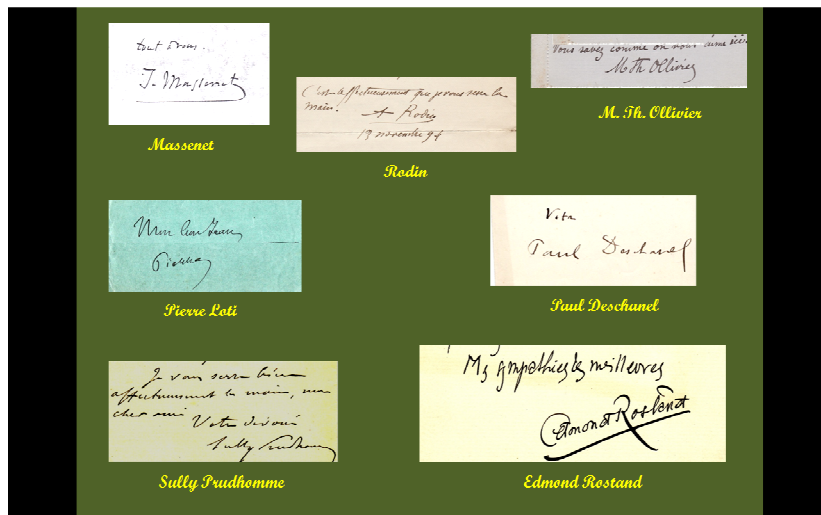 tout à vous.
J. Massenet
Massenet
C'est affectueusement que je vous serre la
main.
A Rodin
13 novembre 94
Rodin
Vous savez comme on vous aime ici.
M Th Ollivier
M. Th. Ollivier
Mon cher
Pierre Loti
Votre
Paul Deschanel
Paul Deschanel
Je vous serre bien
affectueusement la main, mon
cher ami
Votre dévoué
Sully Prudhomme
Sully Prudhomme
Mes sympathies les meilleures
Edmond Rostand
Edmond Rostand